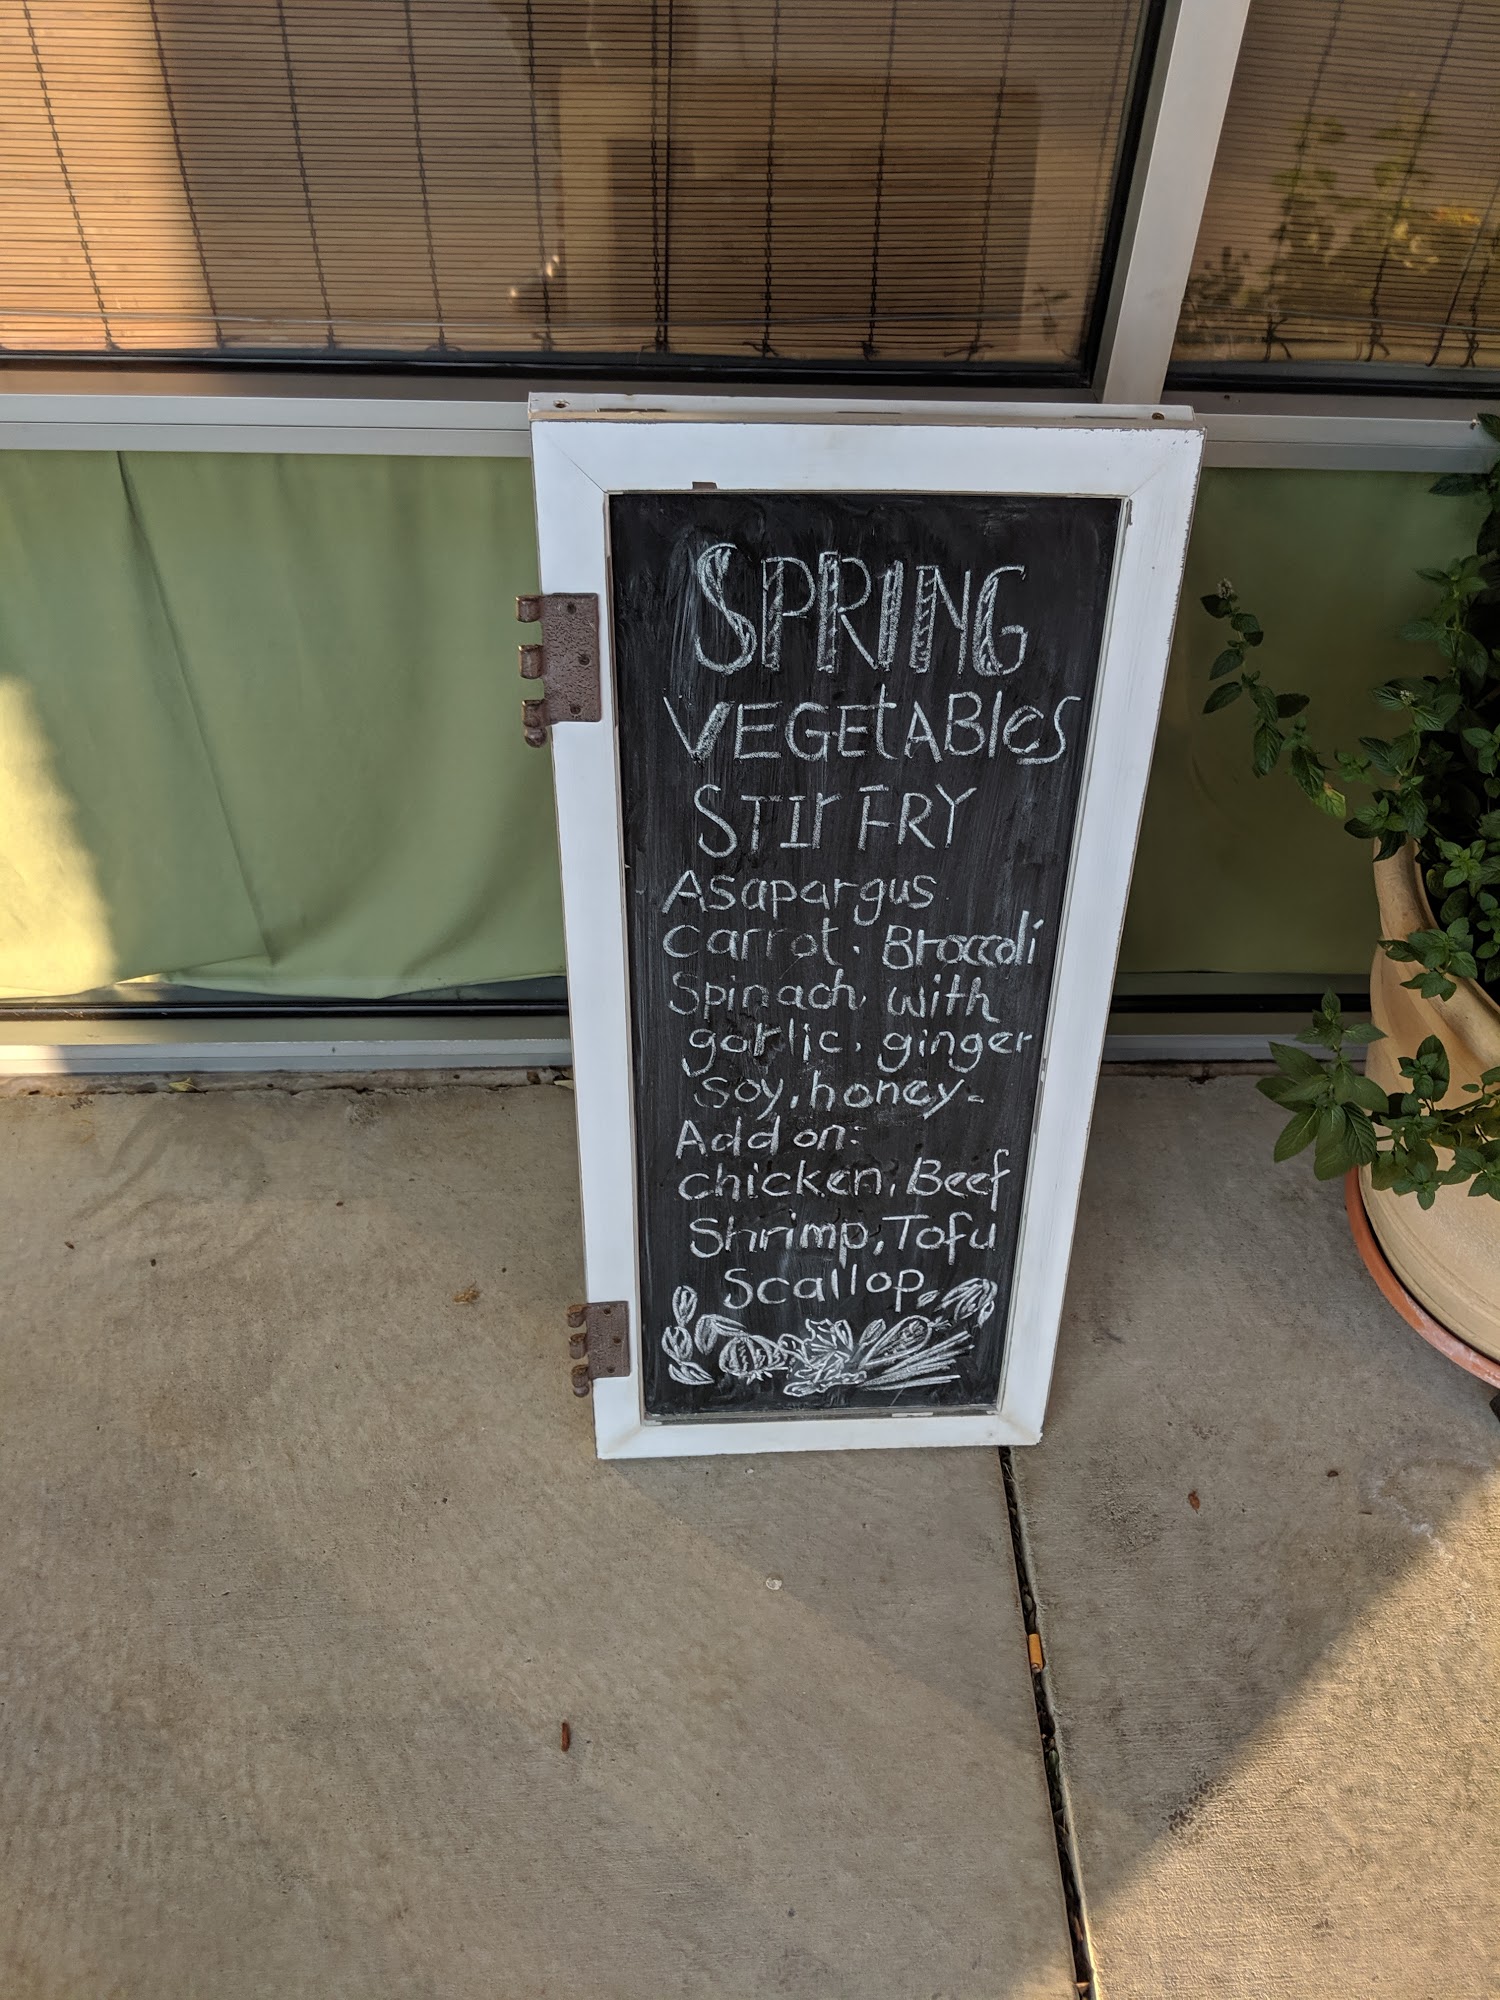 SPRING
VEGEtABles
STIr FRY
Asapargus
Carrot. Broccoli
Spinach, with
garlic. ginger
soy, honey.
Add on:
chicken, Beef
Shrimp, Tofu
Scallop